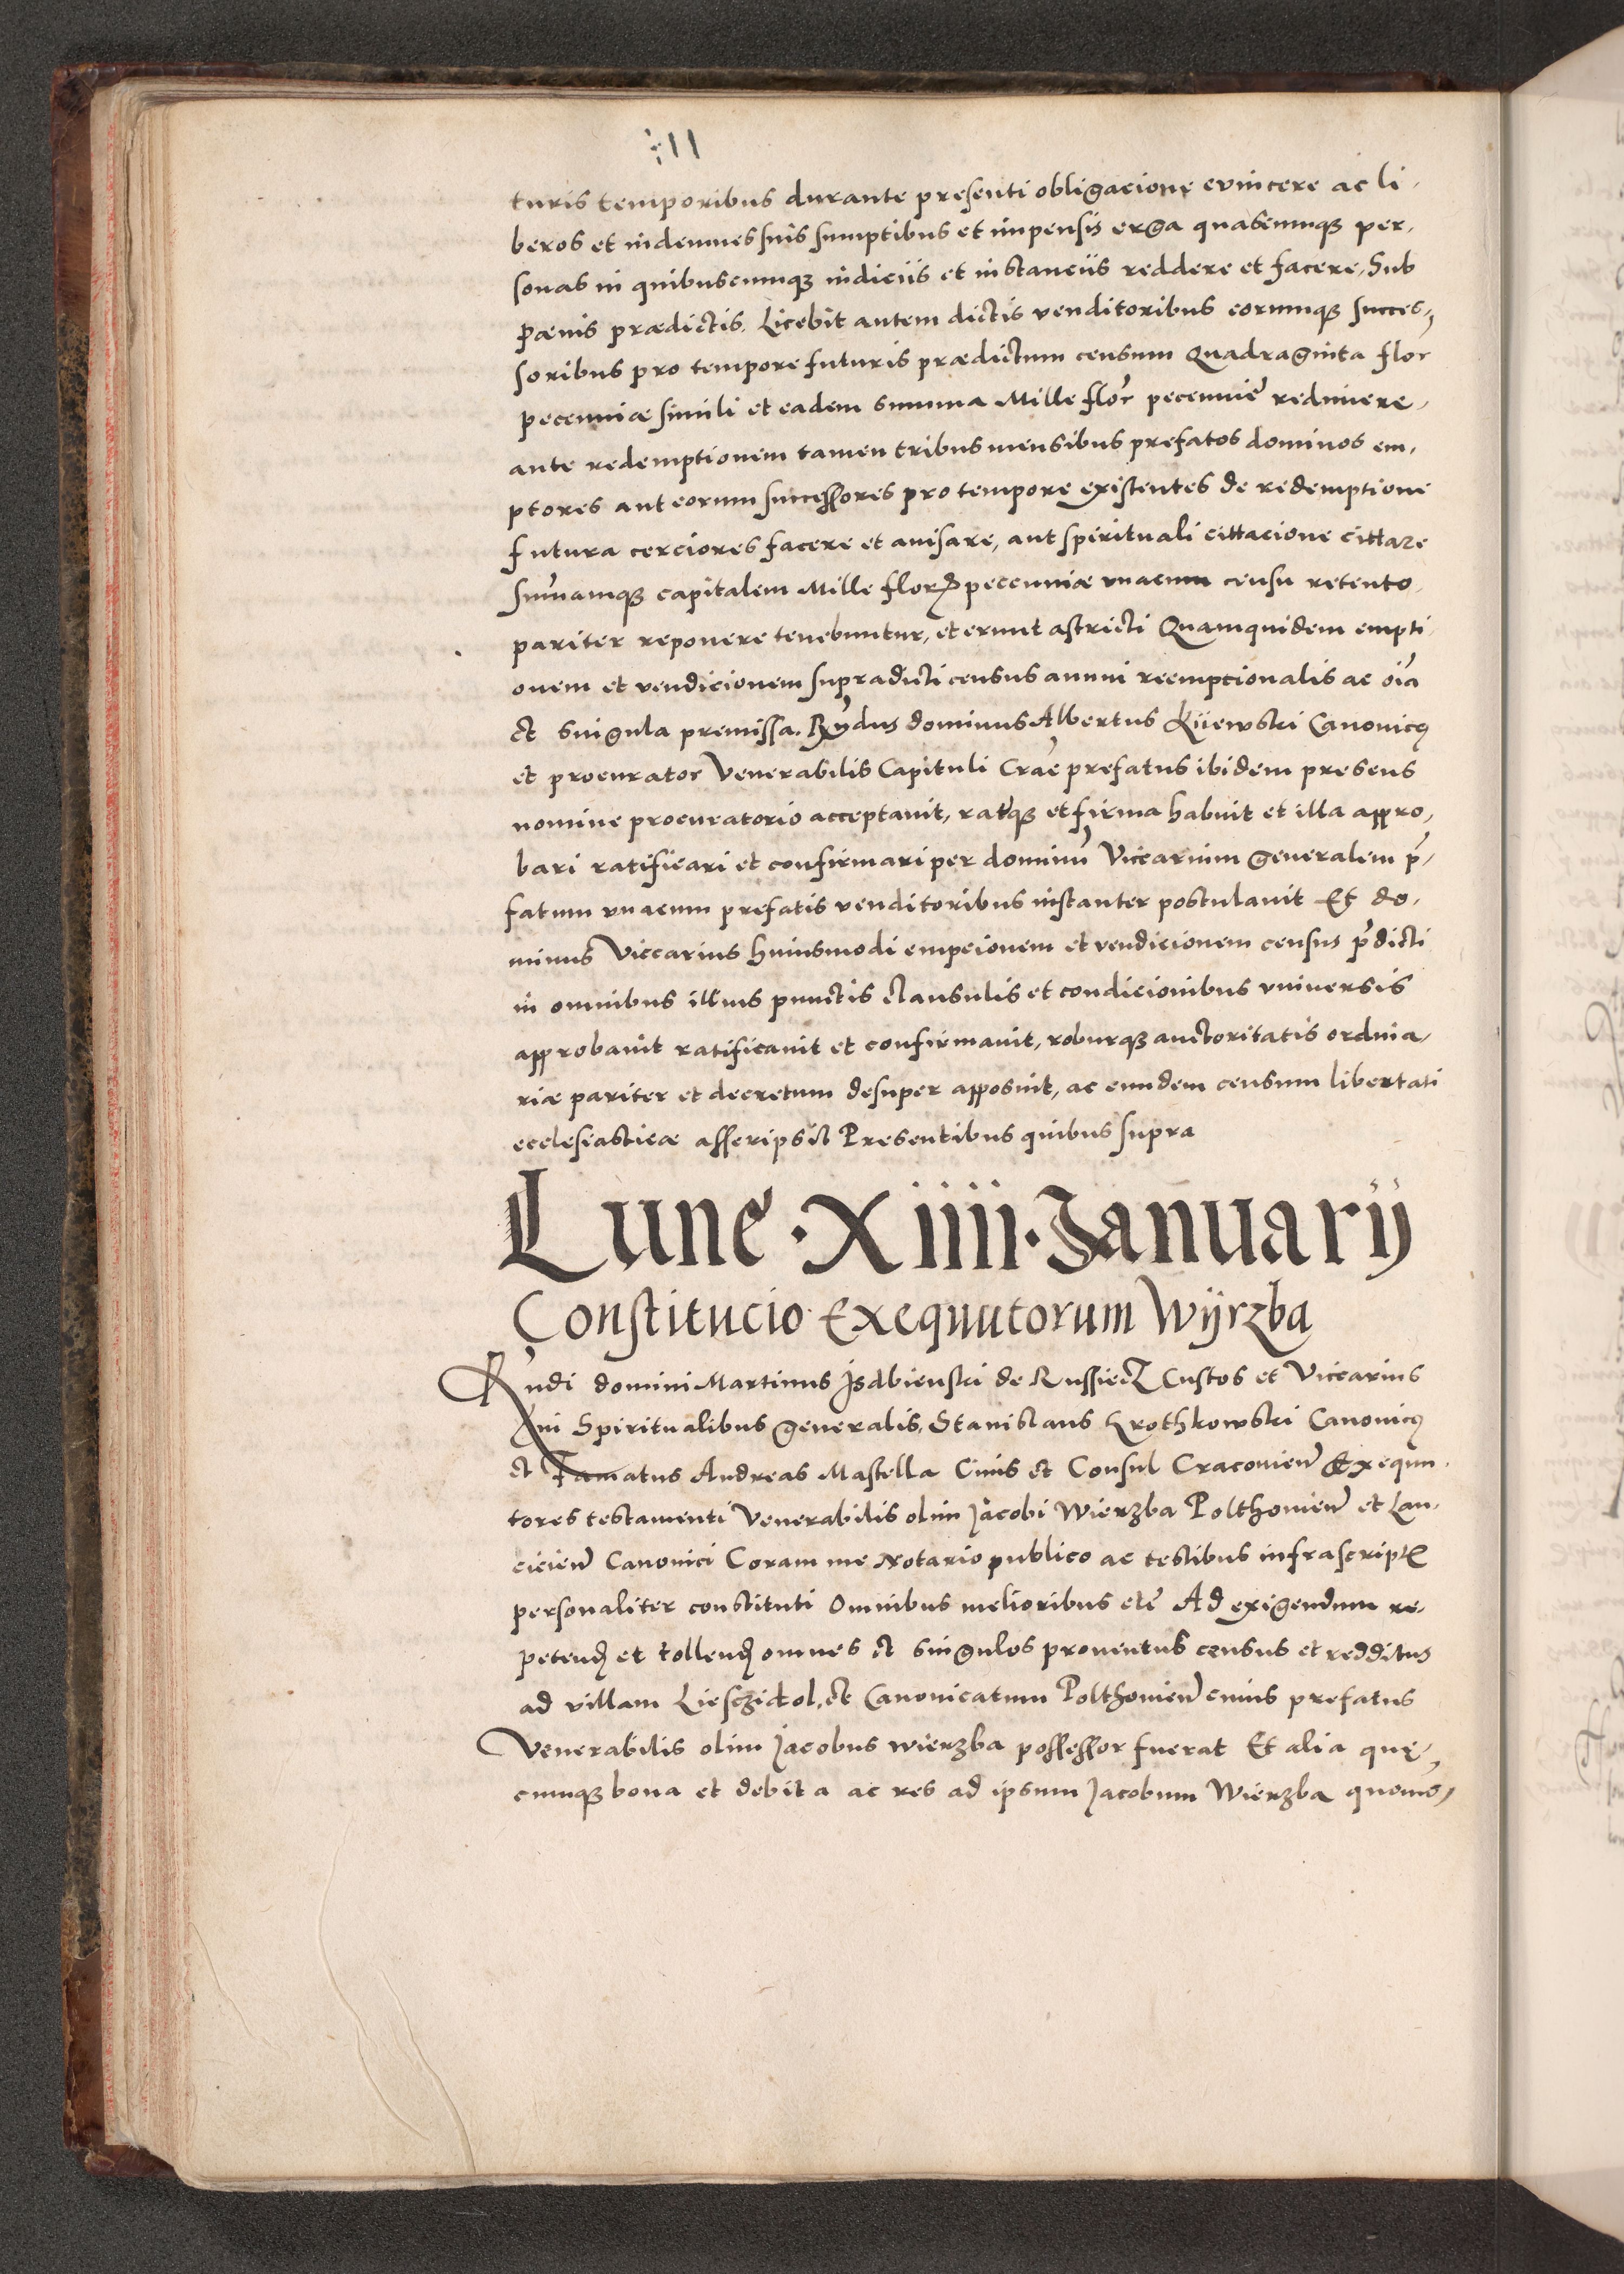 turis temporibus durante presenti obligacione evincere ac li-
beros et indemnes suis sumptibus et impensis erga quascumq3 per-
sonas in quibuscumq3 iudiciis et instanciis reddere et facere, Sub
pænis prædictis. Licebit autem dictis venditoribus eorumq3 succes-
soribus pro tempore futuris prædictum censum Quadraginta flor
pecenniæ simili et eadem summa Mille flor̃ pecennie redimere,
ante redemptionem tamen tribus mensibus prefatos dominos em-
ptores aut eorum successores pro tempore existentes de redemptione
futura cerciores facere et avisare, aut spirituali cittacione cittare
sum̃amq3 capitalem Mille florꝝ pecenniæ unacum censu retento
pariter reponere tenebuntur, et erunt astricti Quamquidem empti-
onem et vendicionem supradicti census annui reempcionalis ac oĩa
et singula premissa. Rṽdus dominus Albertus Kijewski Canonicꝰ
et procurator Venerabilis Capituli Crac̃ prefatus ibidem presens
nomine procuratorio acceptavit, rataq3 et firma habuit et illa appro-
bari ratificari et confirmari per dominũ Vicearium generalem p̃-
fatum unacum prefatis venditoribus instanter postulavit Et do-
minus Viccarius huiusmodi empcionem et vendicionem census p̃dicti
in omnibus illius punctis clausulis et condicionibus universis
approbavit ratificavit et confirmavit, roburq3 auctoritatis ordina-
riæ pariter et decretum desuper apposuit, ac eundem censum libertati
ecclesiasticæ asscripsit Presentibus quibus supra
Lune · Xiiii · Ianuarij
Constitucio Exequutorum Wÿrzba
Rṽndi domini Martinus Isdbienski de Russiecz Custos et Vicearius
in Spiritualibus generalis, Stanislaus Krothkowski Canonicꝰ
et Famatus Andreas Mastella Civis et Consul Cracovien̄ Exequu-
tores testamenti Venerabilis olim Jacobi Wierzba Polthovien̄ et Lan-
cicien̄ Canonici Coram me Notario publico ac testibus infrascript̃
personaliter constituti Omnibus melioribus etc̃ Ad exigendum re-
petenđ et tollenđ omnes et singulos proventus census et redditus
ad villam Liesczidol, et Canonicatum Polthovien̄ cuius prefatus
Venerabilis olim Jacobus Wierzba possessor fuerat Et alia que-
cumq3 bona et debita ac res ad ipsum Jacobum Wierzba quomõ-